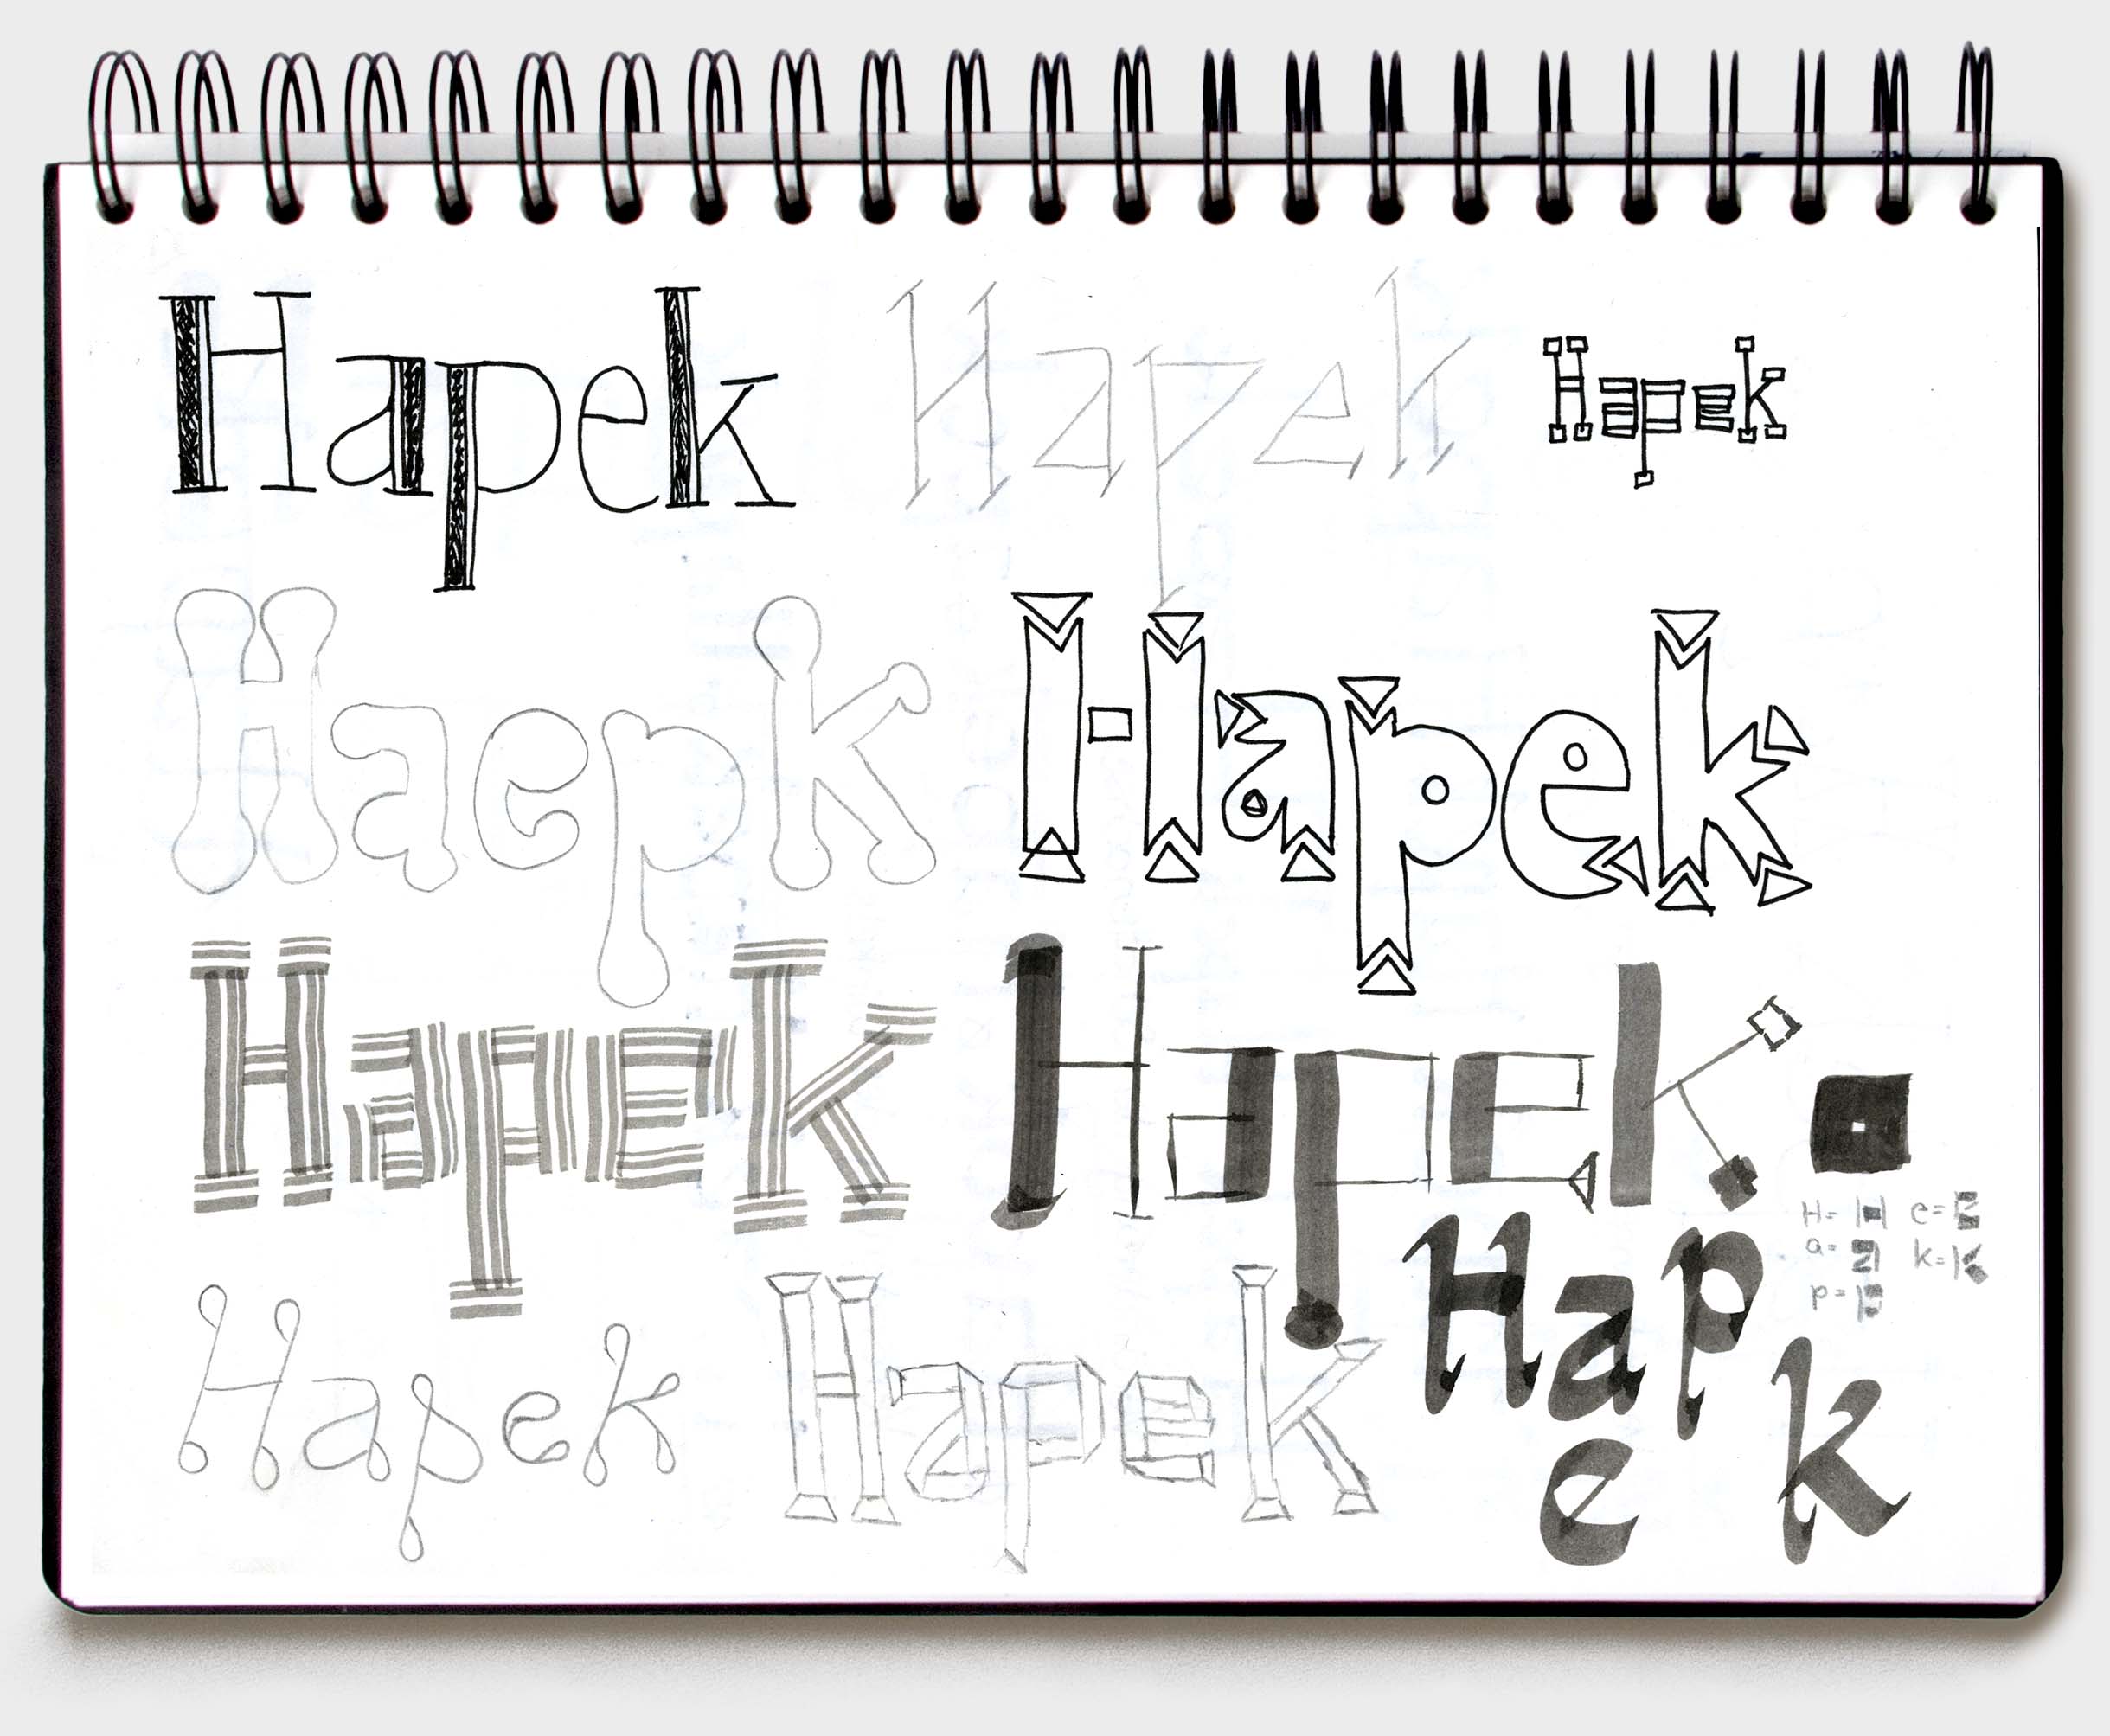 Hapek Hapek Hapek
Haepk Hapek
Hapek Hapek
H= H e= e
a= a k= k
p= p
Hapek Hapek Hap
e k